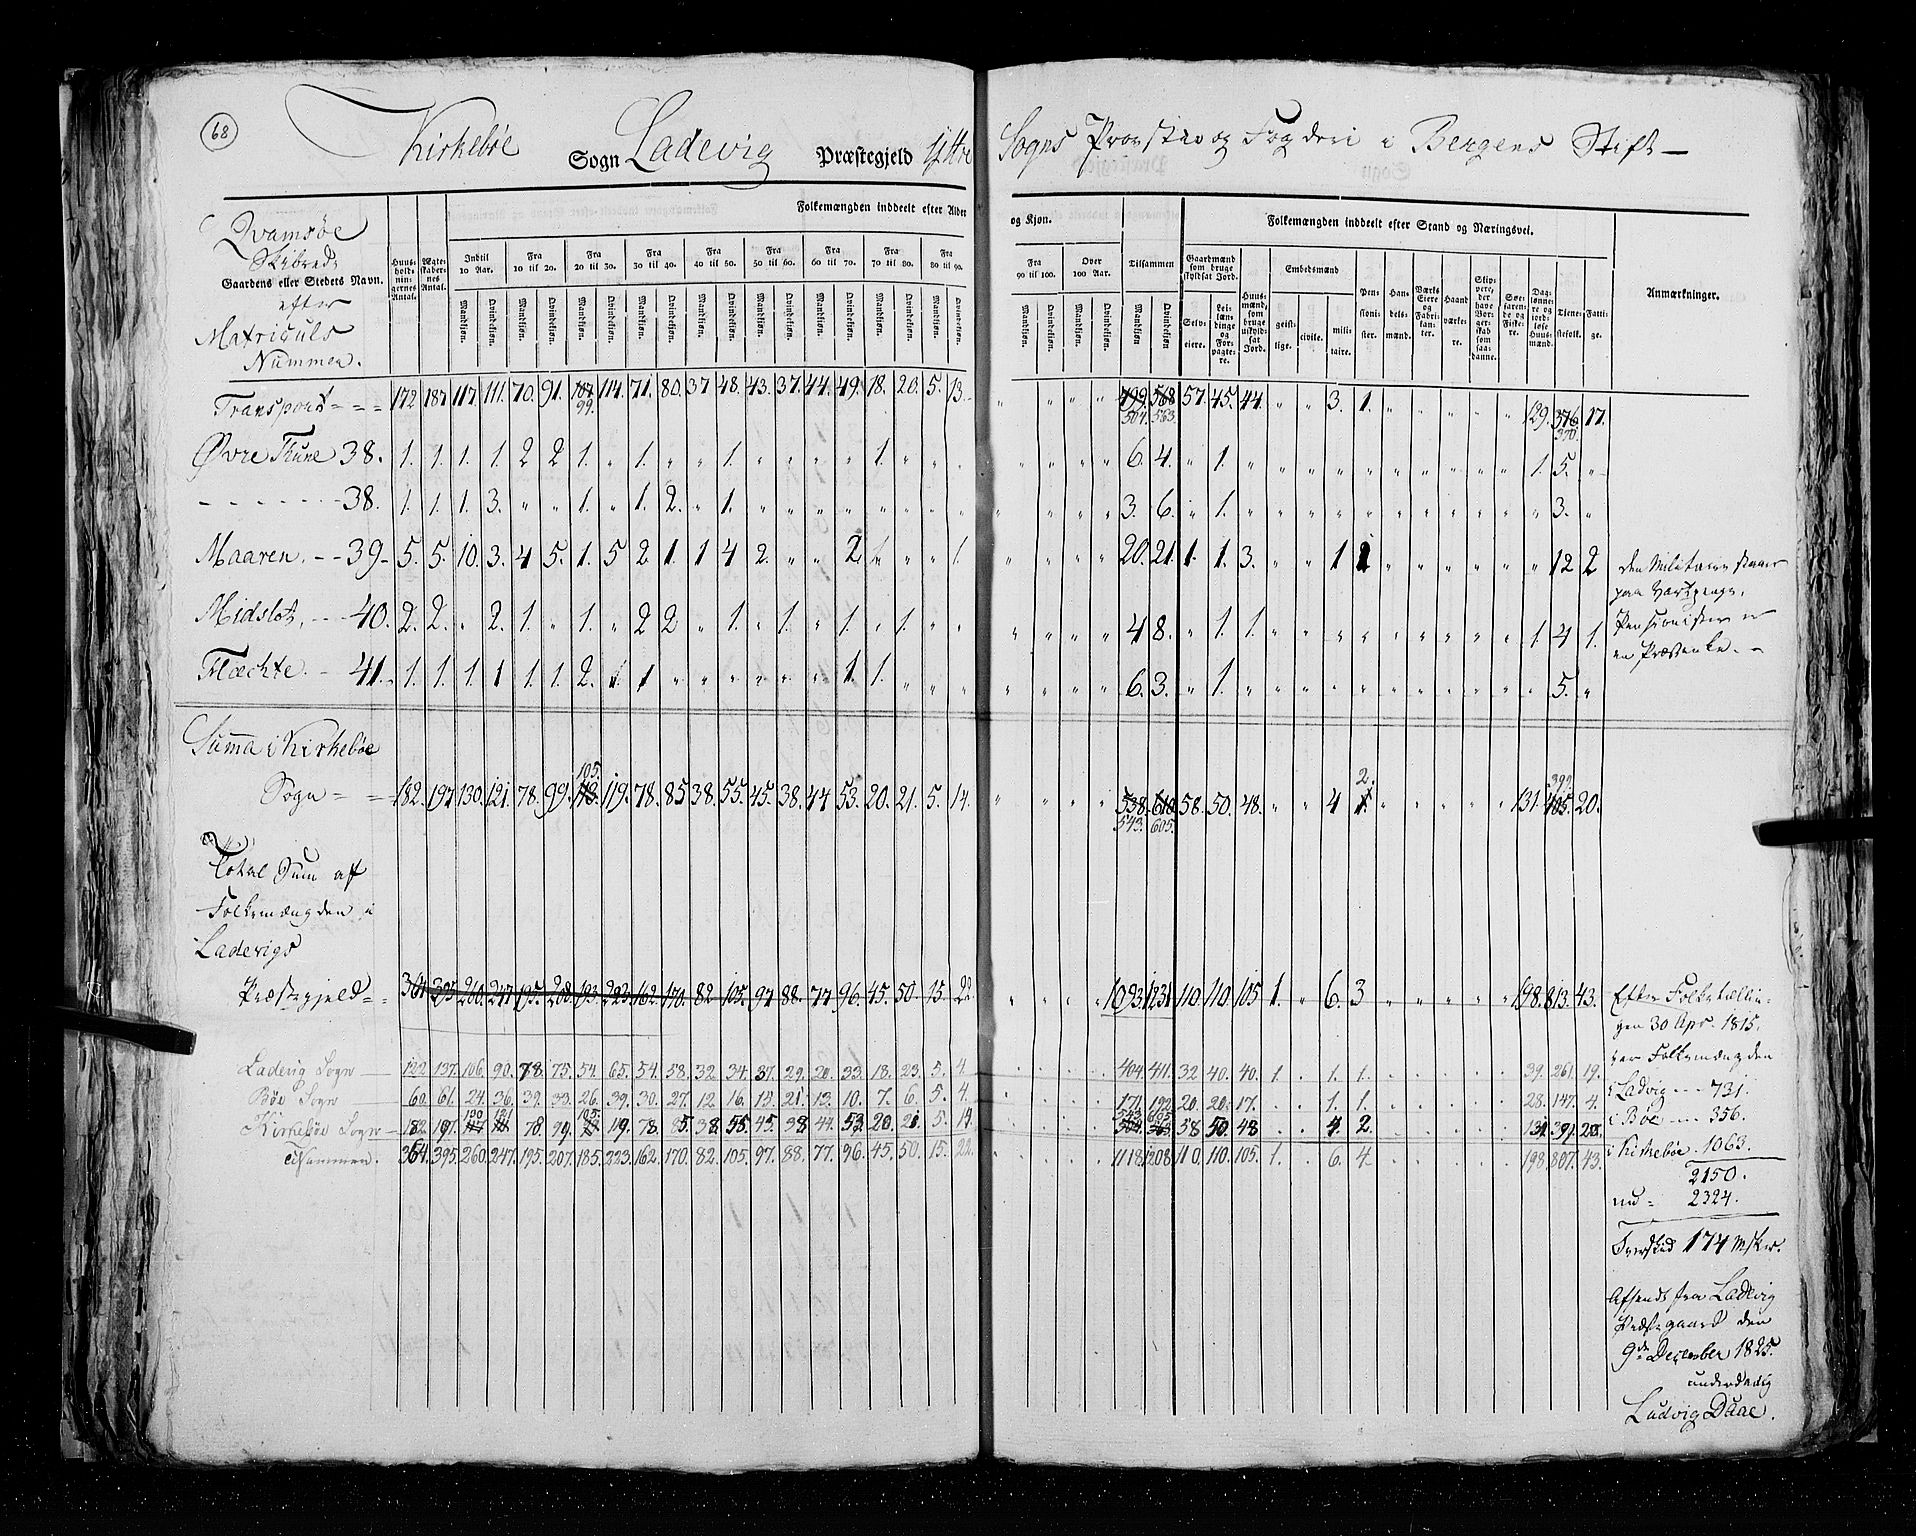 68
Kirkebøe Sogn Ladevig Præstegjeld Yttre Sogns Provstie og Fogderi i Bergens Stift
Qvamsøe Skibrede
Gaardens eller Stedets Navn.
efter
Matriculs
Nummer.
Huusholdningernes Antal.
Ægteskabernes Antal.
Folkemængden inddeelt efter Alder og Kjøn.
Indtil 10 Aar. Fra 10 til 20. Fra 20 til 30. Fra 30 til 40. Fra 40 til 50. Fra 50 til 60. Fra 60 til 70. Fra 70 til 80. Fra 80 til 90. Fra 90 til 100. Over 100 Aar. Tilsammen
Mandkjøn. Qvindekjøn.
Folkemængden inddeelt efter Stand og Næringsvei.
Gaardmænd som bruge skyldsat Jord.
Selveiere. Leilændinge og Forpagtere.
Huusmænd, som bruge uskyldsat Jord.
Embedsmænd
geistlige. civile. militaire.
Pensionister. Handelsmænd. Værks Eiere og Fabrikanter. Haandværkere.
Slippere, der have Borgerskab som saadanne.
Søefarende og Fiskere.
Daglønnere og jordløse Huusmænd.
Tienestefolk. Fattige.
Anmærkninger.
Transport = = = 172 187 117 111. 70. 91. 107 99. 114. 71. 80. 37 48. 43. 37. 44. 49. 18. 20. 5. 13. " " " " 499. 504. 568 563. 57. 45. 44 " " 3. 1. " " " " " " 129. 376 370. 17.
Øvre Thune 38. 1. 1. 1. 1. 2 2 1. " 1. " " 1. " " " " 1. " " " " " " " 6. 4. " 1. " " " " " " " " " " " 1. 5. "
- - - - - - 38. 1. 1. 1. 3. " " 1. " 1. 2. " 1. " " " " " " " " " " " " 3. 6. " 1. " " " " " " " " " " " " 3. "
Maaren. - - 39 - 5. 5. 10. 3. 4 5. 1. 5 2 1 1 4 2. " " 2 " " " 1. " " " " 20. 21. 1. 1. 3. " " 1 1 " " " " " " " 12 2
Midslot. - - - 40. 2. 2. " 2. 1. " 1. " 2 2 " 1. " 1. " 1. " 1. " " " " " " 4 8. " 1. 1. " " " " " " " " " " 1. 4 1.
Flæchte. - - 41. - 1. 1. 1. 1 1. 1. 2. 1 1 " " " " " " 1 1. " " " " " " " 6. 3. " 1. " " " " " " " " " " " " 5. "
den Militaire staaer
paa Vartpenge.
Pensionisten er
en Præsteenke. -
Summa i Kirkebøe
Sogn = = 182. 197 130. 121. 78. 99. 105. 113. 119. 78. 85 38. 55. 45. 38. 44 53. 20. 21. 5. 14. " " " " 538. 543. 610 605. 58. 50. 48. " " 4 2. 1. " " " " " " 131. 399 405. 20.
Total Sum af
Folkemængden i
Ladevigs
Præstegjeld = = 364 395 260. 247 195. 208. 193. 223. 162. 170. 82 105. 97 88. 77 96. 45. 50. 15. 22 " " " " 1093. 1231 110. 110. 105 1. " 6. 3 " " " " " " 198. 813. 43.
Ladevig Sogn 122 137. 106. 90. 78. 75. 54. 65. 54. 58. 32. 34. 37. 29. 20. 33. 18. 23. 5. 4. 404. 411. 32 40. 40. 1. 1. 1. 39. 261. 19.
Bøe Sogn 60. 61. 24. 36. 39. 33. 26. 39. 30. 27. 12. 16. 21. 13. 10. 7. 6. 5. 4. 171. 192. 20. 20. 17. 1. 1. 28. 147. 4.
Kirkebøe Sogn 182. 197. 130 121 78. 99. 105. 119. 78. 85. 38. 55. 45. 38 44. 53. 20. 21. 5. 14. 543. 605. 58 50. 48 4. 2. 131. 20.
Tilsammen. 364. 395. 260. 247. 195. 207. 185. 223. 162. 170. 82. 105. 97. 88. 77. 96. 45. 50. 15. 22. 1118. 1208. 110. 110. 105. 1. 6. 4 198. 807. 43.
Efter Folketællin-
gen 30 Apr. 1815.
var Folkemængden
i Ladvig - - - 731.
i Bøe - - - 356.
i Kirkebøe 1063.
2150.
nu = 2324.
Overskud 174 Msker.
Afsendt fra Ladevig
Præstegaard den
9de December 1825.
underdanig
Ludvig Daae.